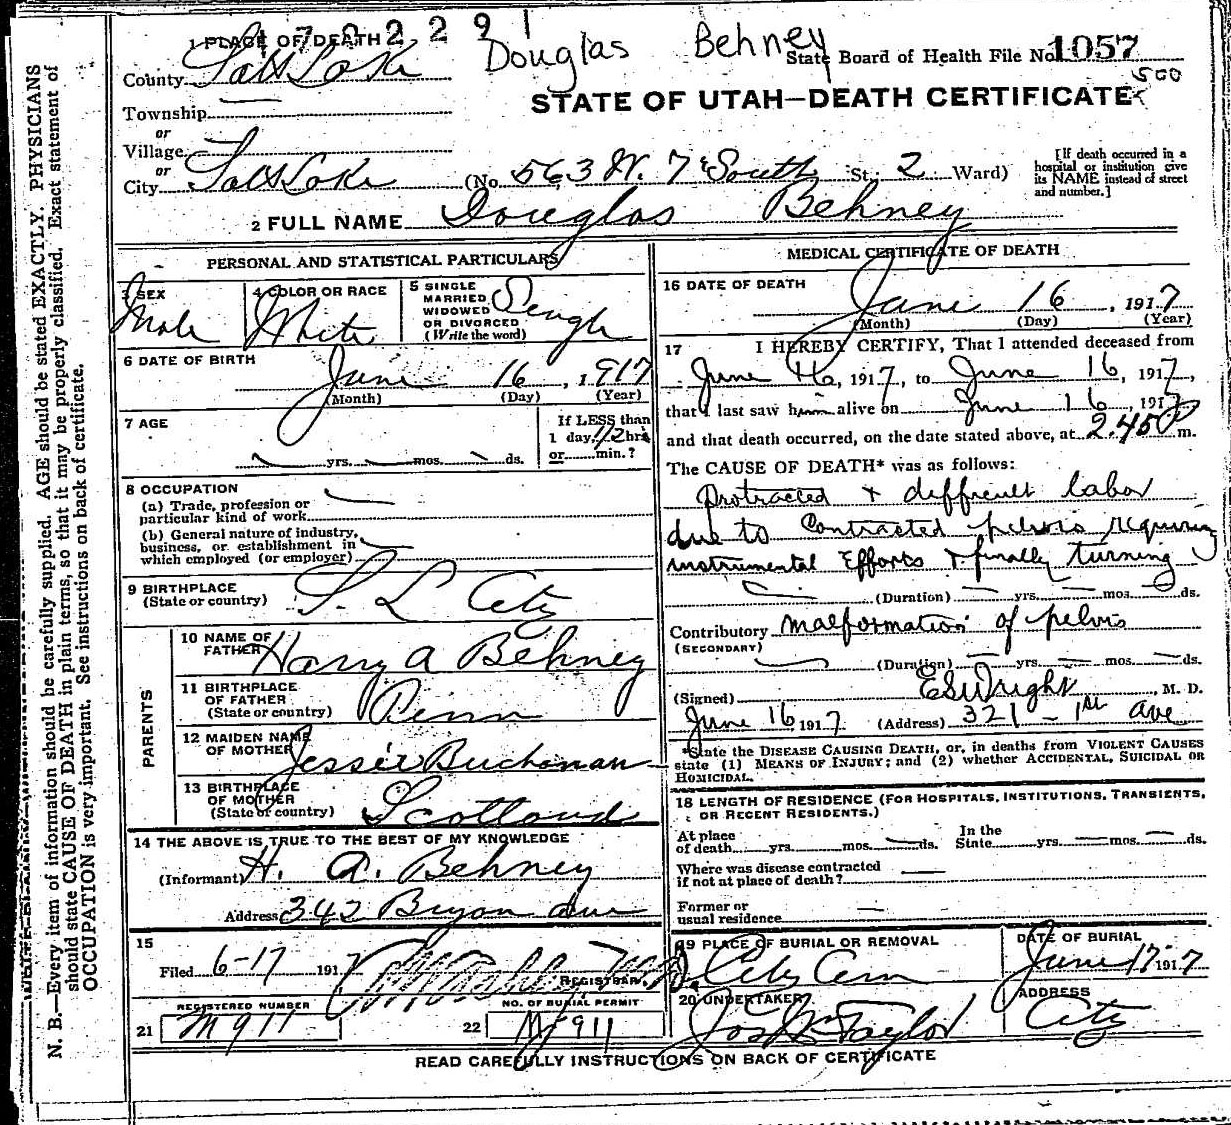 1 7 0 2 2 9 1
1 PLACE OF DEATH
Douglas Behney
State Board of Health File No. 1057
500
County Salt Lake
STATE OF UTAH—DEATH CERTIFICATE
Township
or
Village
or
City Salt Lake (No. 563 W. 7 South St.; 2 Ward)
[If death occurred in a
hospital or institution give
its NAME instead of street
and number.]
2 FULL NAME Douglas Behney
PERSONAL AND STATISTICAL PARTICULARS
3 SEX
Male
4 COLOR OR RACE
White
5 SINGLE
MARRIED
WIDOWED
OR DIVORCED
(Write the word)
Single
6 DATE OF BIRTH
June 16, 1917
(Month) (Day) (Year)
7 AGE
yrs. mos. ds.
If LESS than
1 day, 1/2 hrs.
or min.?
8 OCCUPATION
(a) Trade, profession or
particular kind of work
(b) General nature of industry,
business, or establishment in
which employed (or employer)
9 BIRTHPLACE
(State or country)
S. L. City
PARENTS
10 NAME OF
FATHER
Harry A Behney
11 BIRTHPLACE
OF FATHER
(State or country)
Penn
12 MAIDEN NAME
OF MOTHER
Jessie Buchanan
13 BIRTHPLACE
OF MOTHER
(State or country)
Scotland
14 THE ABOVE IS TRUE TO THE BEST OF MY KNOWLEDGE
(Informant) H. A. Behney
Address 342 Bryon Ave
15
Filed 6-17 1917
REGISTRAR.
REGISTERED NUMBER
21 M 911
NO. OF BURIAL PERMIT
22 M 911
MEDICAL CERTIFICATE OF DEATH
16 DATE OF DEATH
June 16, 1917
(Month) (Day) (Year)
17 I HEREBY CERTIFY, That I attended deceased from
June 16, 1917, to June 16, 1917,
that I last saw him alive on June 16, 1917
and that death occurred, on the date stated above, at 2.45 P m.
The CAUSE OF DEATH* was as follows:
Protracted + difficult labor
due to Contracted pelvis requiring
instrumental Efforts + finally turning
(Duration) yrs. mos. ds.
Contributory Malformation of pelvis
(SECONDARY)
(Duration) yrs. mos. ds.
(Signed) E S Wright, M. D.
June 16 1917 (Address) 321 - 1st Ave
*State the DISEASE CAUSING DEATH, or, in deaths from VIOLENT CAUSES
state (1) MEANS OF INJURY; and (2) whether ACCIDENTAL, SUICIDAL OR
HOMICIDAL.
18 LENGTH OF RESIDENCE (FOR HOSPITALS, INSTITUTIONS, TRANSIENTS,
OR RECENT RESIDENTS.)
At place
of death yrs. mos. ds.
In the
State yrs. mos. ds.
Where was disease contracted
if not at place of death?
Former or
usual residence
19 PLACE OF BURIAL OR REMOVAL
City Cem
DATE OF BURIAL
June 17 1917
20 UNDERTAKER
Jos Wm Taylor
ADDRESS
City
READ CAREFULLY INSTRUCTIONS ON BACK OF CERTIFICATE
N. B.—Every item of information should be carefully supplied. AGE should be stated EXACTLY. PHYSICIANS
should state CAUSE OF DEATH in plain terms, so that it may be properly classified. Exact statement of
OCCUPATION is very important. See instructions on back of certificate.